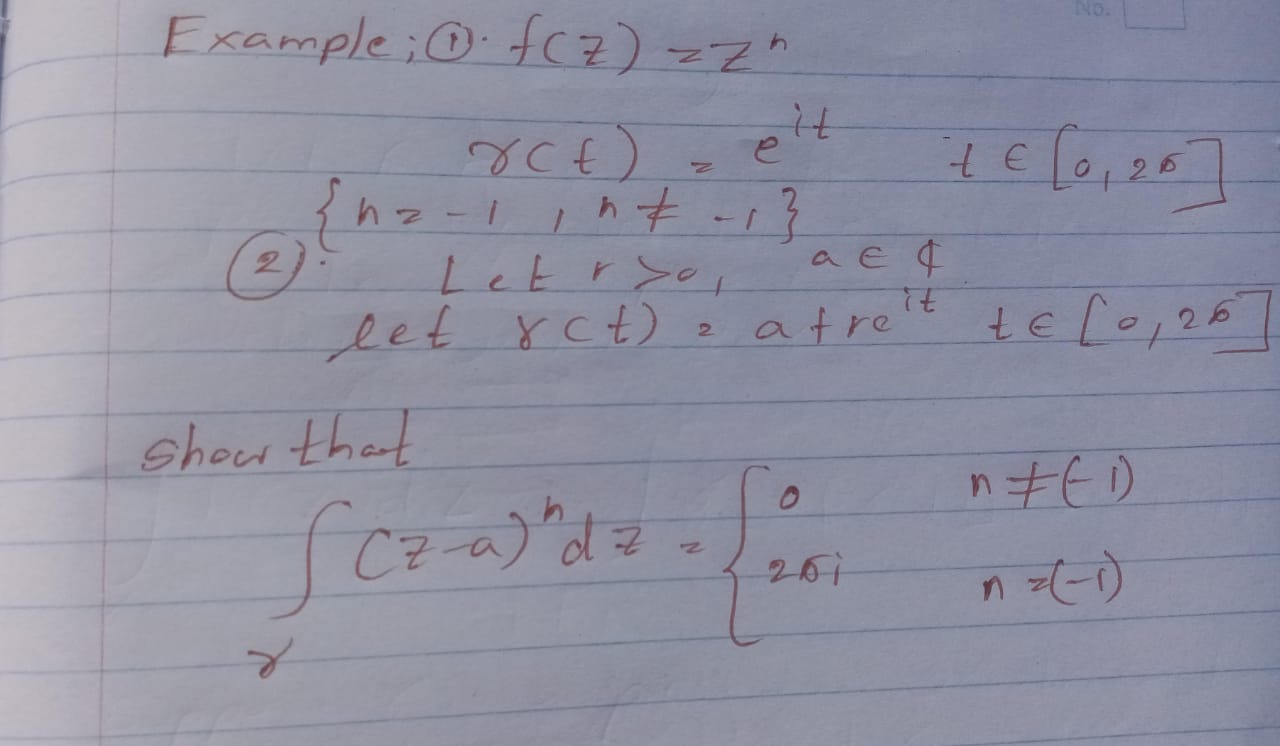 No.
Example; ①. f(z) = z^n
γ(t) = e^{it} t ∈ [0, 2π]
{n = -1, n ≠ -1}
②. Let r > 0, a ∈ ₵
let γ(t) = a + re^{it} t ∈ [0, 2π]
show that
∫_γ (z-a)^n dz = { 0 n ≠ (-1)
2πi n = (-1)